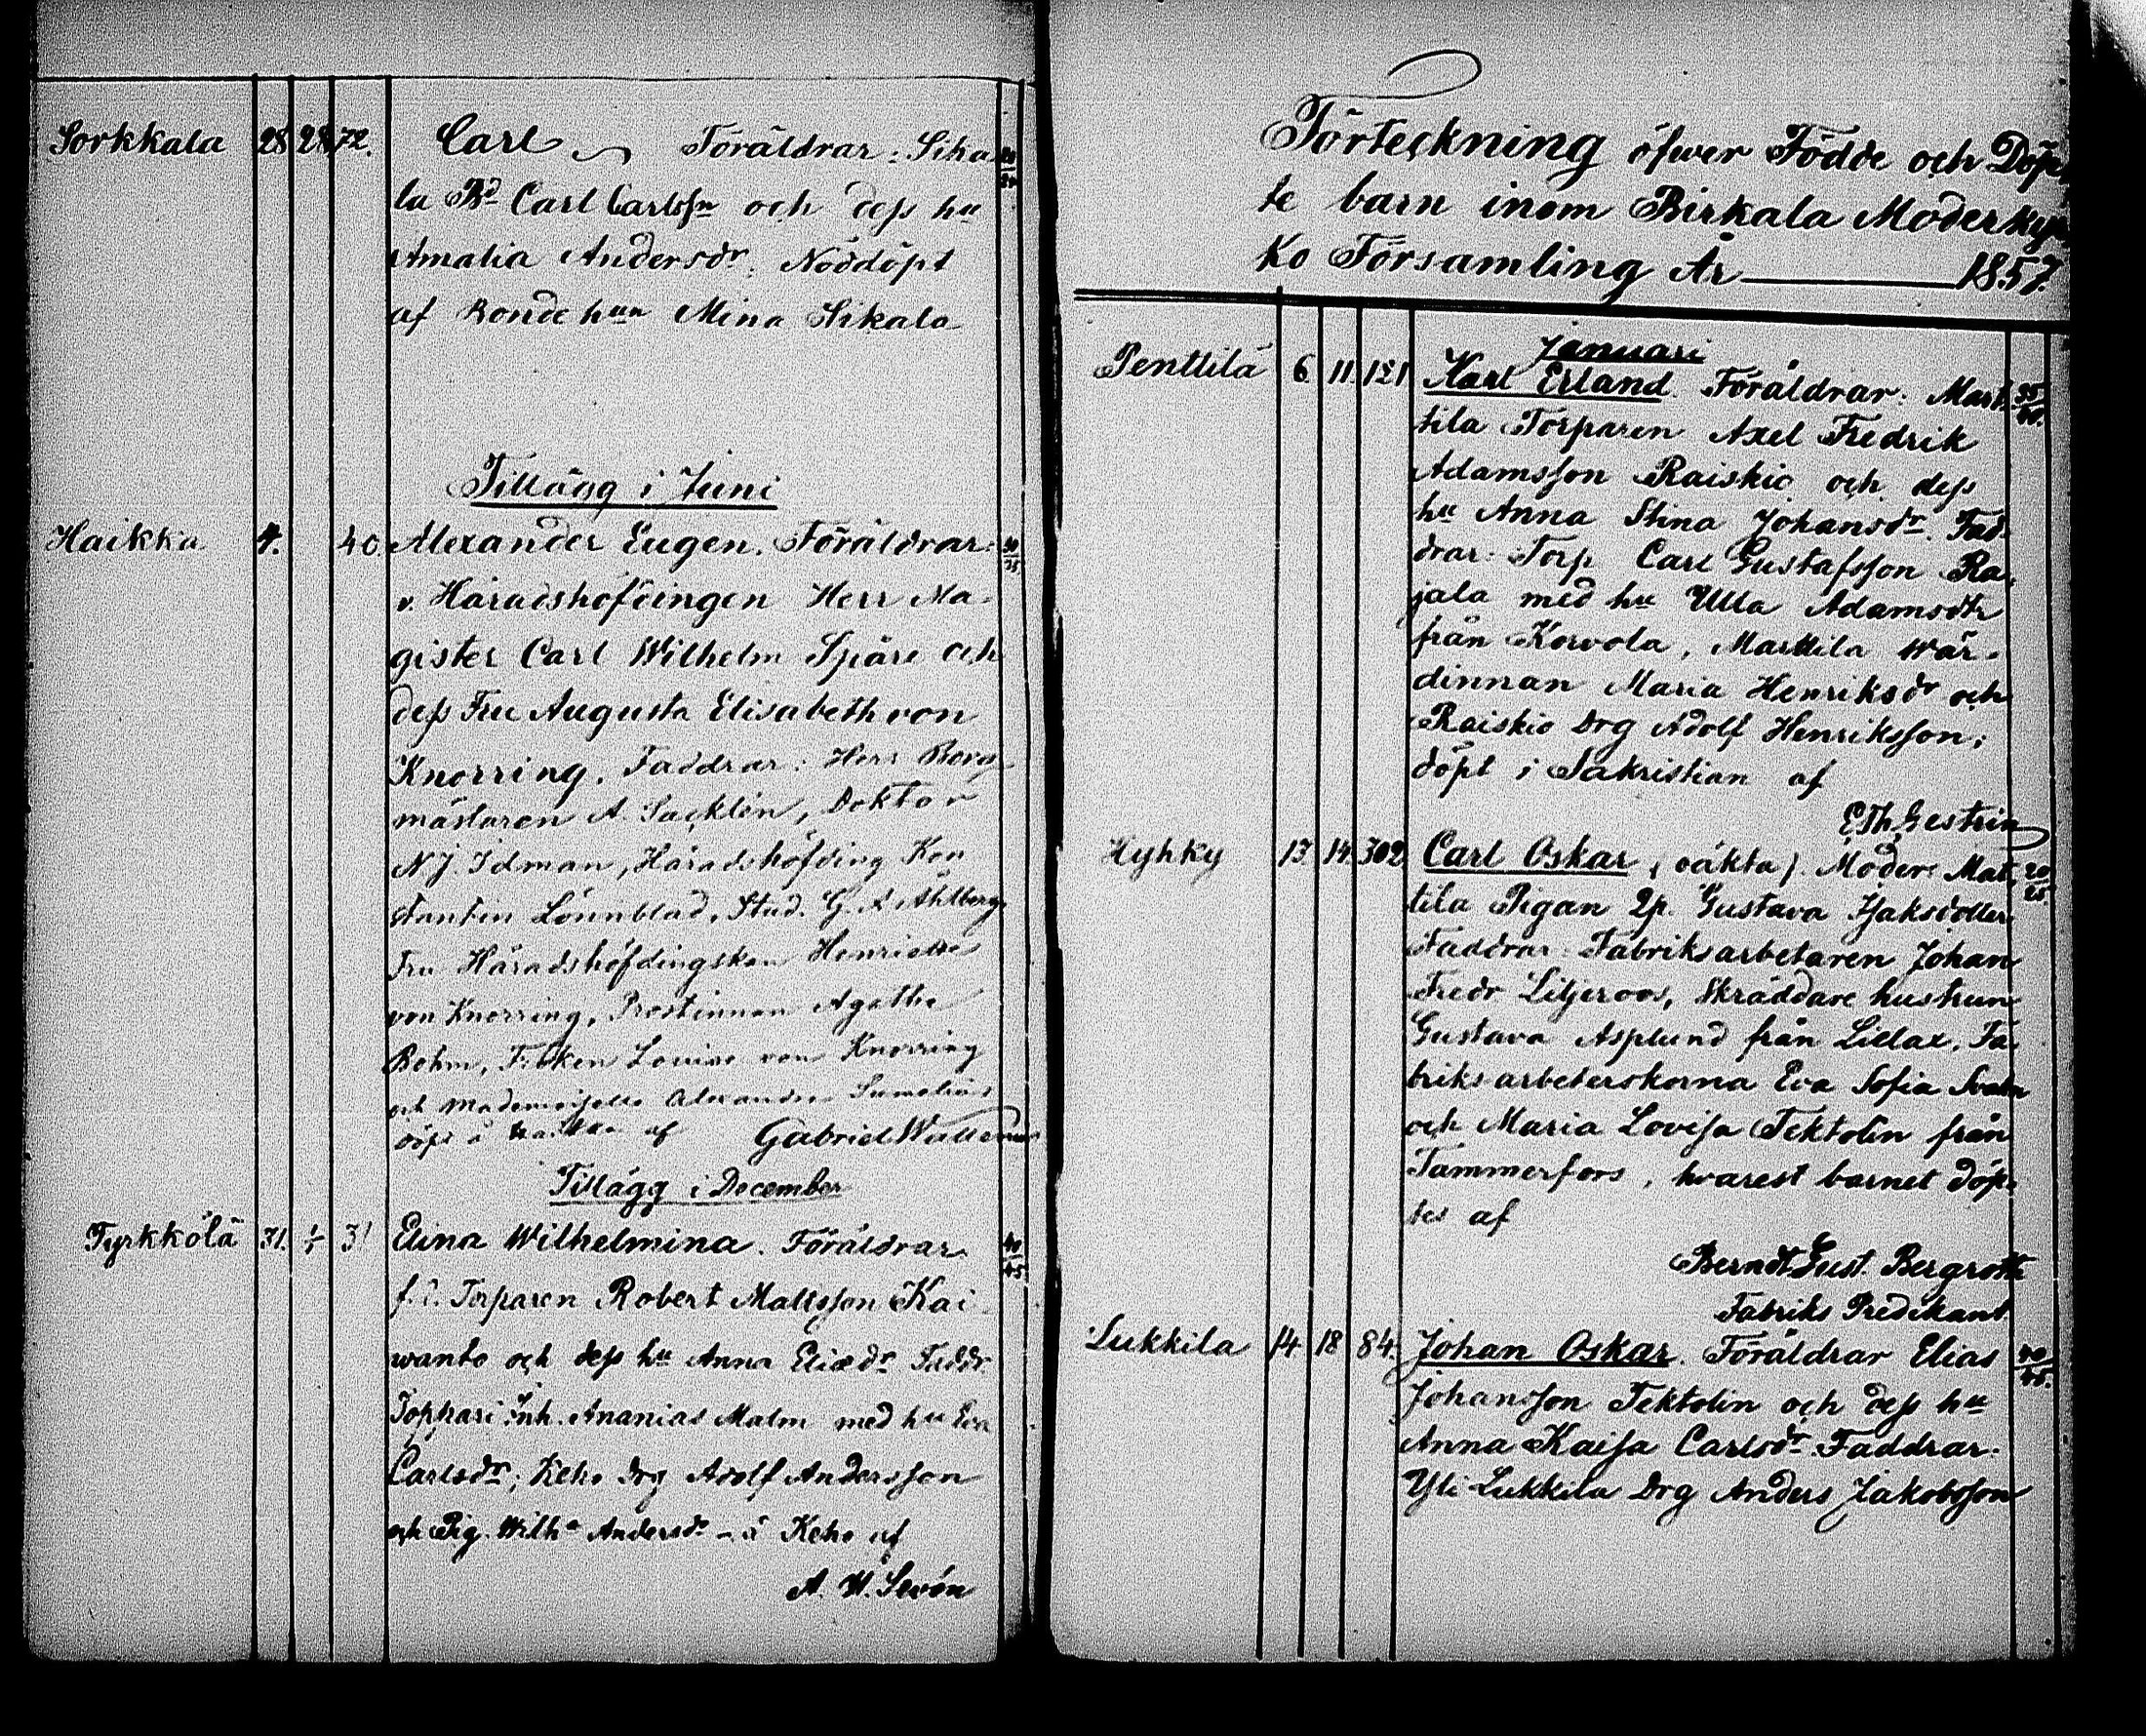 Sorkkala 28 28 72. Carl Föräldrar: Sika
la Bd Carl Carlssn och dess hu
Amalia Andersdr. Nöddöpt
af Bonde hun Mina Sikala
Tillägg i Juni
Haikka 4. 40 Alexander Eugen. Föräldrar: 30/35
v. Häradshöfdingen Herr Ma-
gister Carl Wilhelm Spåre och
dess Fru Augusta Elisabeth von
Knorring. Faddrar: Herr Borg
mästaren A. Sacklén, Doktor
N J. Idman, Häradshöfding Kon
stantin Lönnblad, Stud. G. A. Ahlberg
Fru Häradshöfdingskan Henriette
von Knorring, Prostinnan Agatha
Bohm, Fröken Louise von Knorring
och Mademoiselle Alexandra Sumelius
döpt å Haikka af Gabriel Wallenius
Tillägg i December
Tyrkkölä 31. 1/1 31 Elina Wilhelmina. Föräldrar 40/45
f.d. Torparen Robert Mattsson Kai
wanto och dess hu Anna Eliædr Faddr.
Toppari Inh. Ananias Malm med hu Eva
Carlsdr; Keho drg Adolf Andersson
och Pig. Wilha Andersdr - å Keho af
A. W. Sevón
Förteckning öfwer Födde och Döp-
te barn inom Birkala Moderkyr
ko Församling År 1857.
Januari
Penttilä 6. 11. 121 Karl Erland. Föräldrar: Mart 35/40.
tila Torparen Axel Fredrik
Adamsson Raiskio och dess
hu Anna Stina Johansdr. Fad-
drar: Torp Carl Gustafsson Ra-
jala med hu Ulla Adamsdtr
från Korvola, Marttila wär-
dinnan Maria Henriksdr och
Raiskio Drg Adolf Henriksson;
döpt i Sakristian af
E Th Gestrin
Hyhky 13 14 302 Carl Oskar (oäkta). Moder: Mat 20/25
tila Pigan Gustava Isaksdotter
Faddrar: Fabriksarbetaren Johan
Fredr Liljeroos, Skräddare hustrun
Gustava Asplund från Lielax, Fa-
briksarbeterskorna Eva Sofia
och Maria Lovisa Tektolin från
Tammerfors, hvarest barnet döp-
tes af
Berndt Gust. Bergroth
Fabriks Predikant
Lukkila 14 18 84. Johan Oskar. Föräldrar Elias 40/45.
Johansson Tektolin och dess hu
Anna Kaisa Carlsdr. Faddrar:
Yli-Lukkila Drg Anders Jakobsson